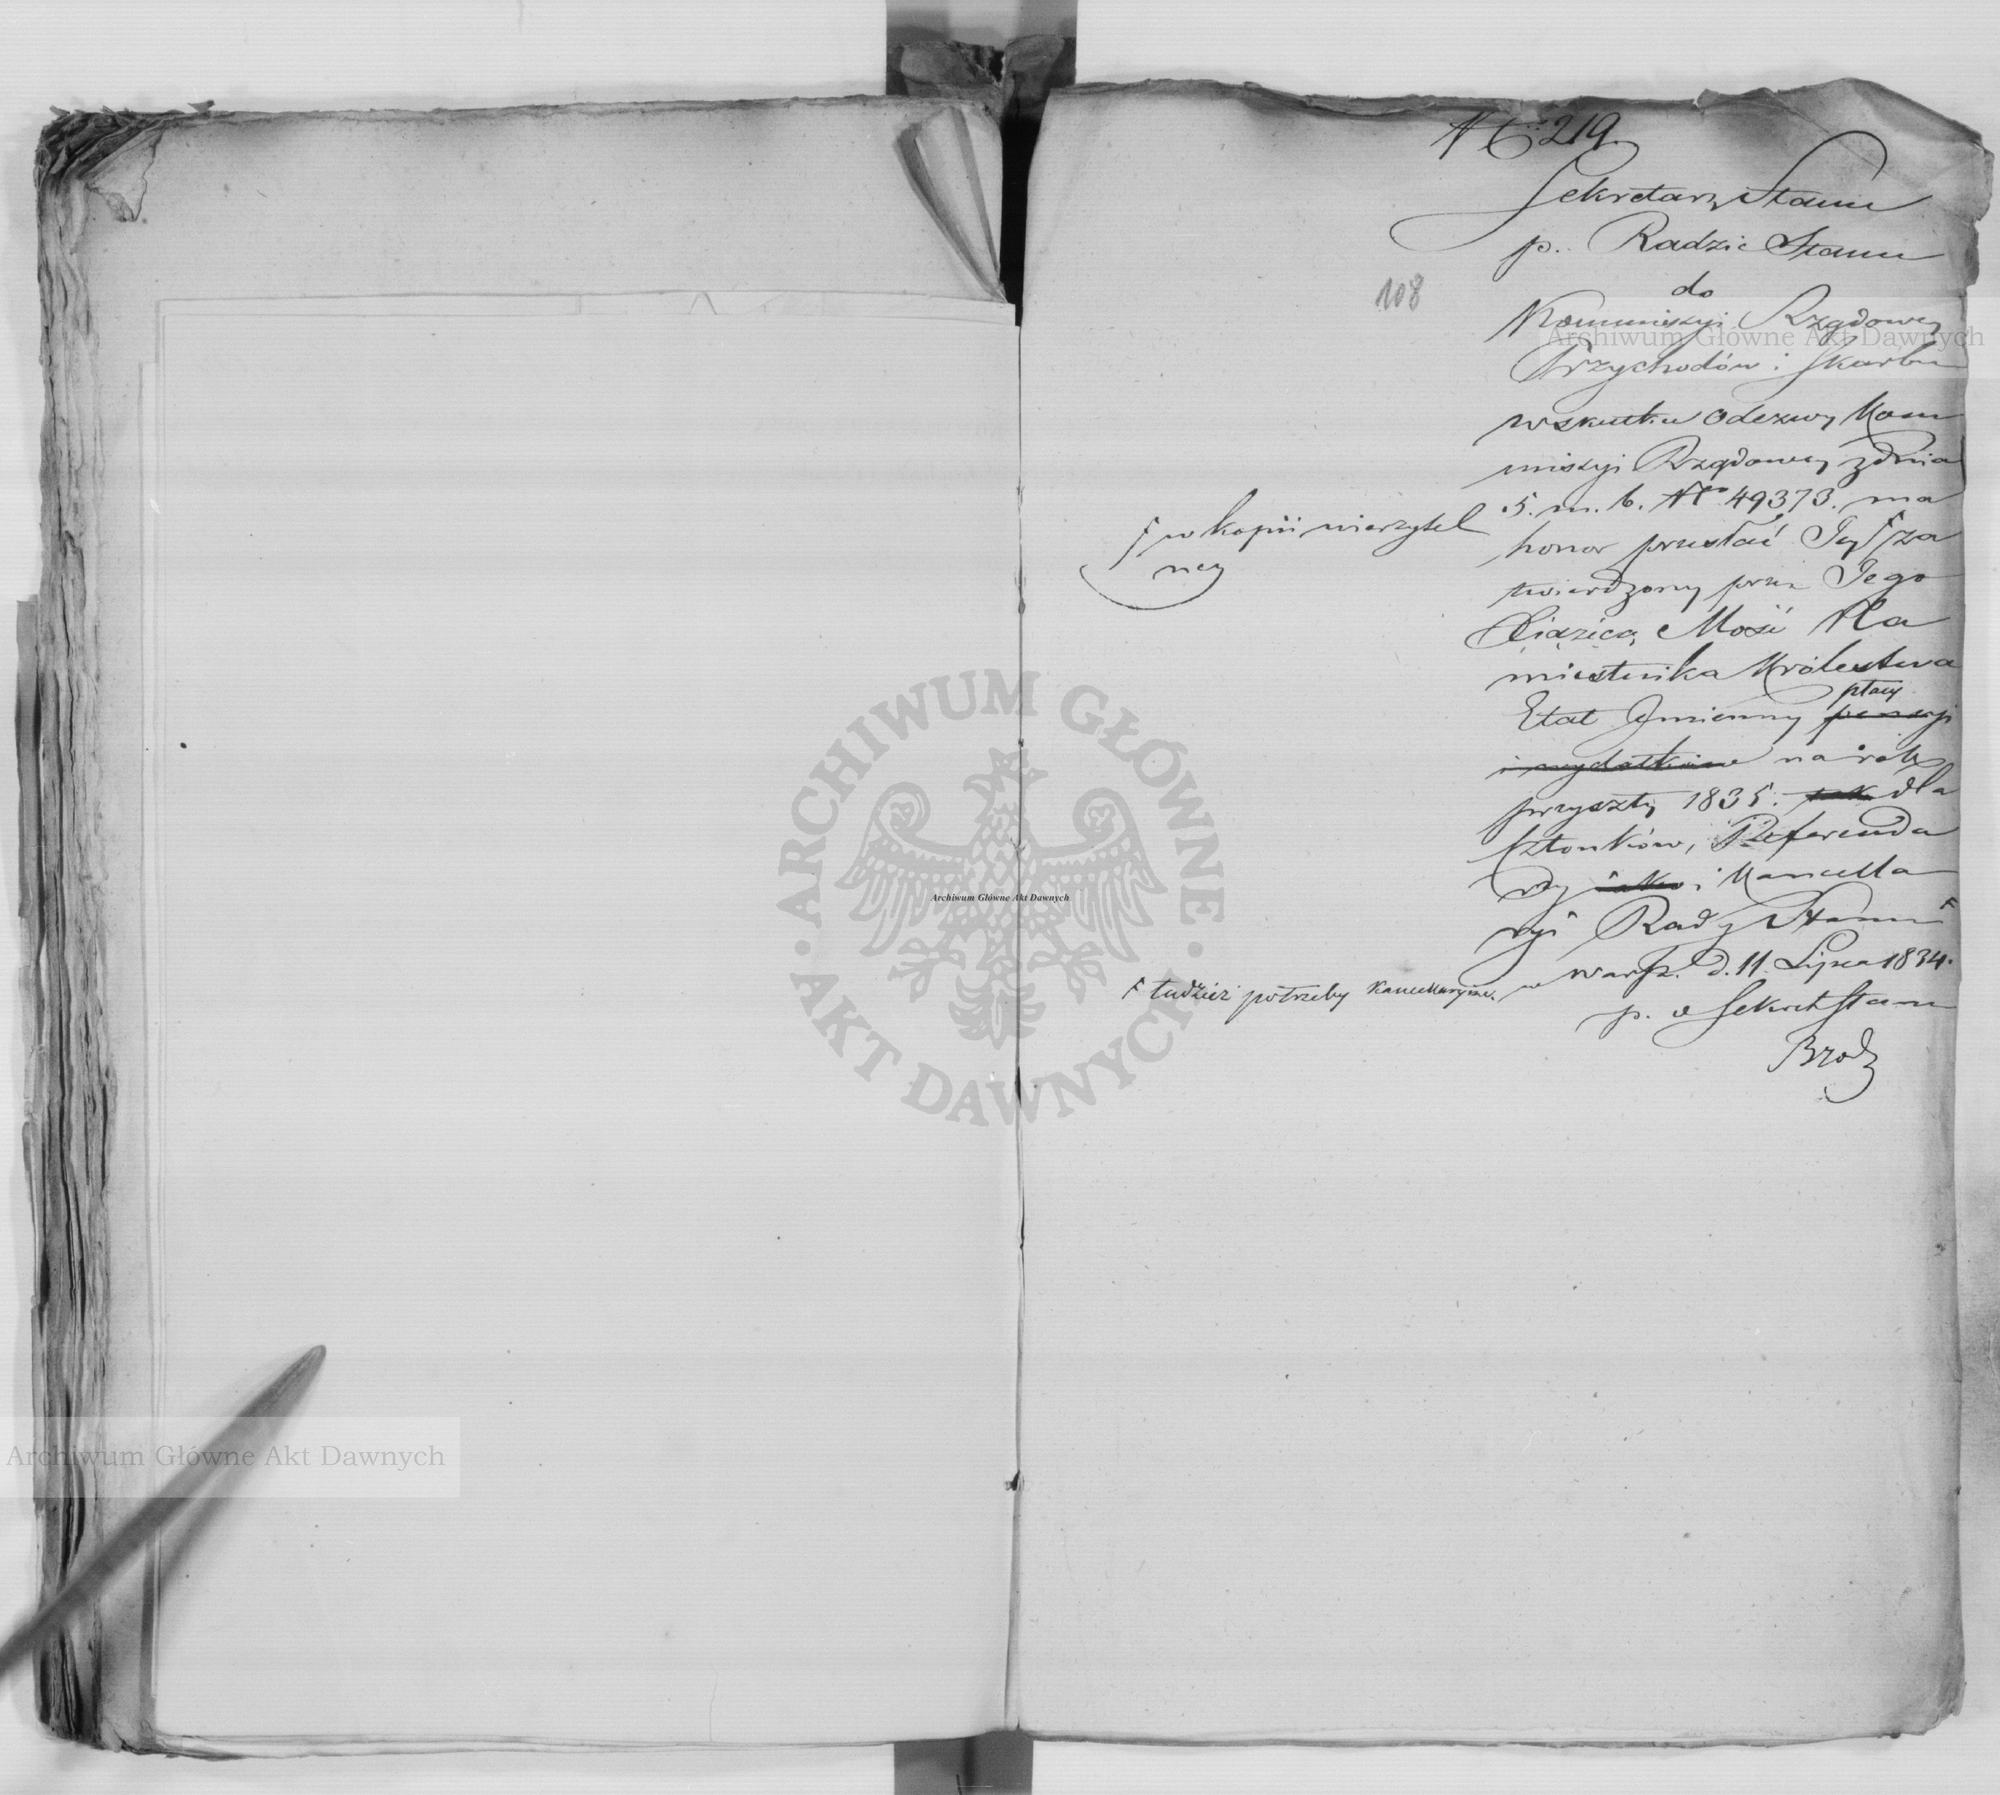 No 219.
Sekretarz Stanu
p. Radzie Stanu
108
do
Kommissyi Rządowey
Przychodów i Skarbu
w skutku odezwy Kom
missyi Rządowey z dnia
5. m. b. No 49373. ma
honor przesłać Jey Ƒ za
Ƒ w kopii wierzytel
ney
twierdzony przez Jego
Xiążęcą Mość Na
miestnika Królestwa
płacy
Etat Imienny pensyi
i wydatków na rok
przyszły 1835. tak dla
Członków, Referenda
rzy jako i Kancella
ryi Rady Stanu Ƒ
Ƒ tudzież potrzeby Kancellaryjne.
w Warsz. d. 11. Lipca 1834.
p. o Sekret Stanu
Brodz
Archiwum Główne Akt Dawnych
ARCHIWUM GŁÓWNE · AKT DAWNYCH ·
Archiwum Główne Akt Dawnych
Archiwum Główne Akt Dawnych